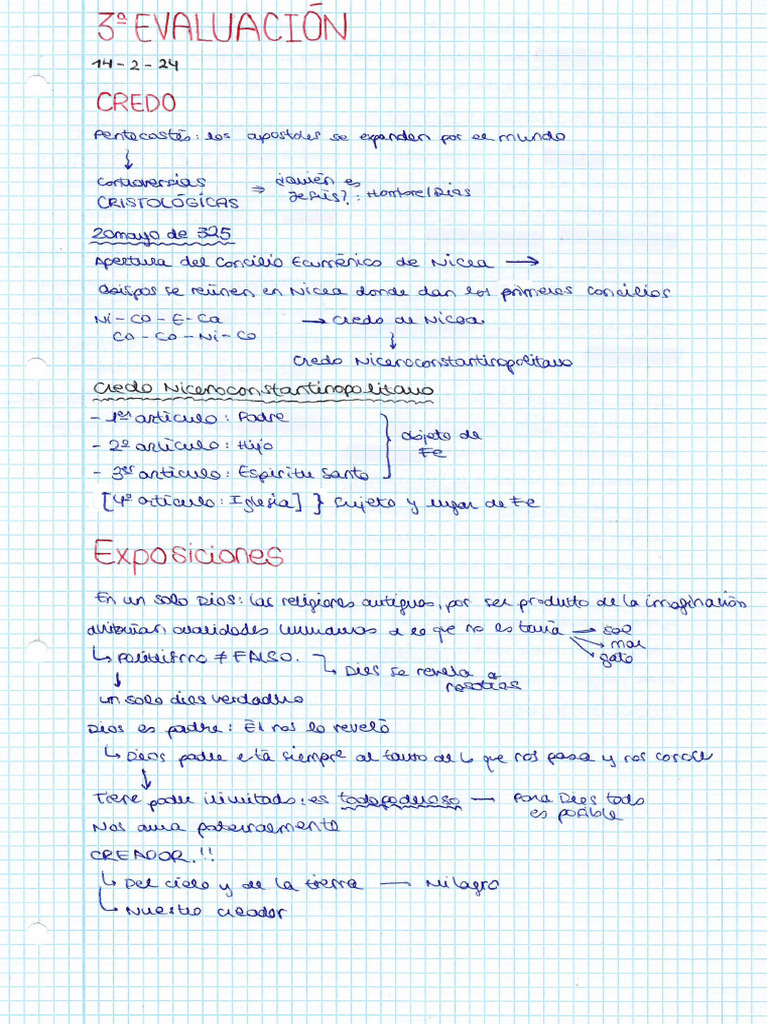 3ª EVALUACIÓN
14-2-24
CREDO
Pentecostés: los apostoles se expanden por el mundo
↓
Controversias CRISTOLÓGICAS ⇒ ¿Quién es Jesús?: Hombre/Dios
20 mayo de 325
Apertura del Concilio Ecuménico de Nicea →
obispos se reúnen en Nicea donde dan los primeros concilios
Ni-Co-E-Ca → Credo de Nicea
Co-Co-Ni-Co ↓
Credo Nicenoconstantinopolitano
Credo Nicenoconstantinopolitano
- 1er artículo: Padre
- 2º artículo: Hijo
- 3er artículo: Espíritu Santo } objeto de Fe
[4º artículo: Iglesia] } Sujeto y lugar de Fe
Exposiciones
En un solo Dios: las religiones antiguas, por ser producto de la imaginación
atribuían cualidades humanas a lo que no es tenía → sol
→ mar
→ gato
↳ Politeísmo ≠ FALSO. ↳ Dios se revela a nosotros
↓
un solo dios verdadero
Dios es padre: Él nos lo reveló
↳ Dios padre está siempre al tanto de lo que nos pasa y nos conoce
↓
Tiene poder ilimitado: es todopoderoso — Para Dios todo es posible
Nos ama paternalmente
CREADOR!!
↳ Del cielo y de la tierra — Milagro
↳ Nuestro creador